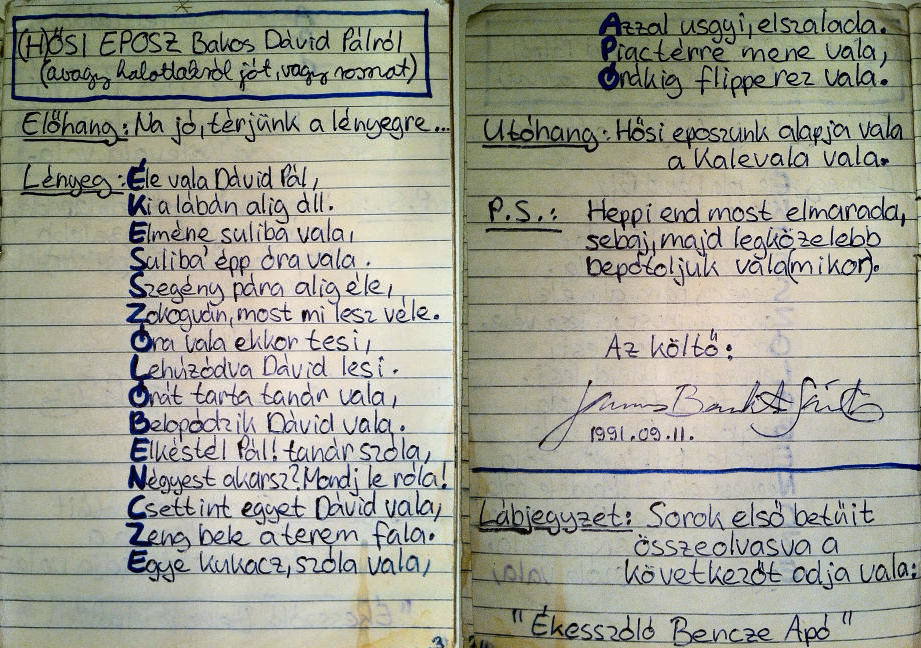 (H)ŐSI EPOSZ Bakos Dávid Pálról
(avagy halottakról jót, vagy rosszat)
Előhang: Na jó, térjünk a lényegre...
Lényeg: Éle vala Dávid Pál,
Ki a lábán alig áll.
Elméne suliba vala,
Suliba' épp óra vala.
Szegény pára alig éle,
Zokogván, most mi lesz véle.
Óra vala ekkor tesi,
Lehúzódva Dávid lesi.
Órát tarta tanár vala,
Belopódzik Dávid vala.
Elkéstél Pál! tanár szóla,
Négyest akarsz? Mondj le róla!
Csettint egyet Dávid vala,
Zeng bele a terem fala.
Egye kukacz, szóla vala,
3
Azzal usgyi, elszalada.
Piactérre mene vala,
Órákig flipperez vala.
Utóhang: Hősi eposzunk alapja vala
a Kalevala vala.
P.S.: Heppi end most elmarada,
sebaj, majd legközelebb
bepótoljuk vala(mikor).
Az költő:
1991.09.11.
Lábjegyzet: Sorok első betűit
összeolvasva a
következőt adja vala:
"Ékesszóló Bencze Apó"